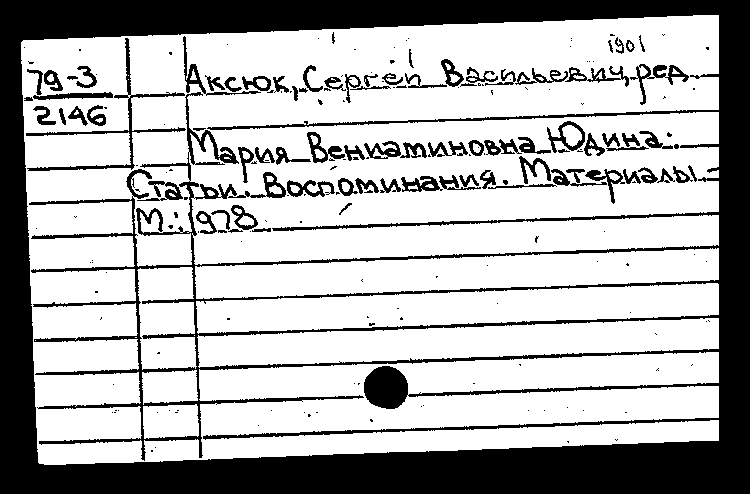 1901
79-3 Аксюк, Сергей Васильевич, ред.
2146
Мария Вениаминовна Юдина:
Статьи. Воспоминания. Материалы.-
М.: 1978